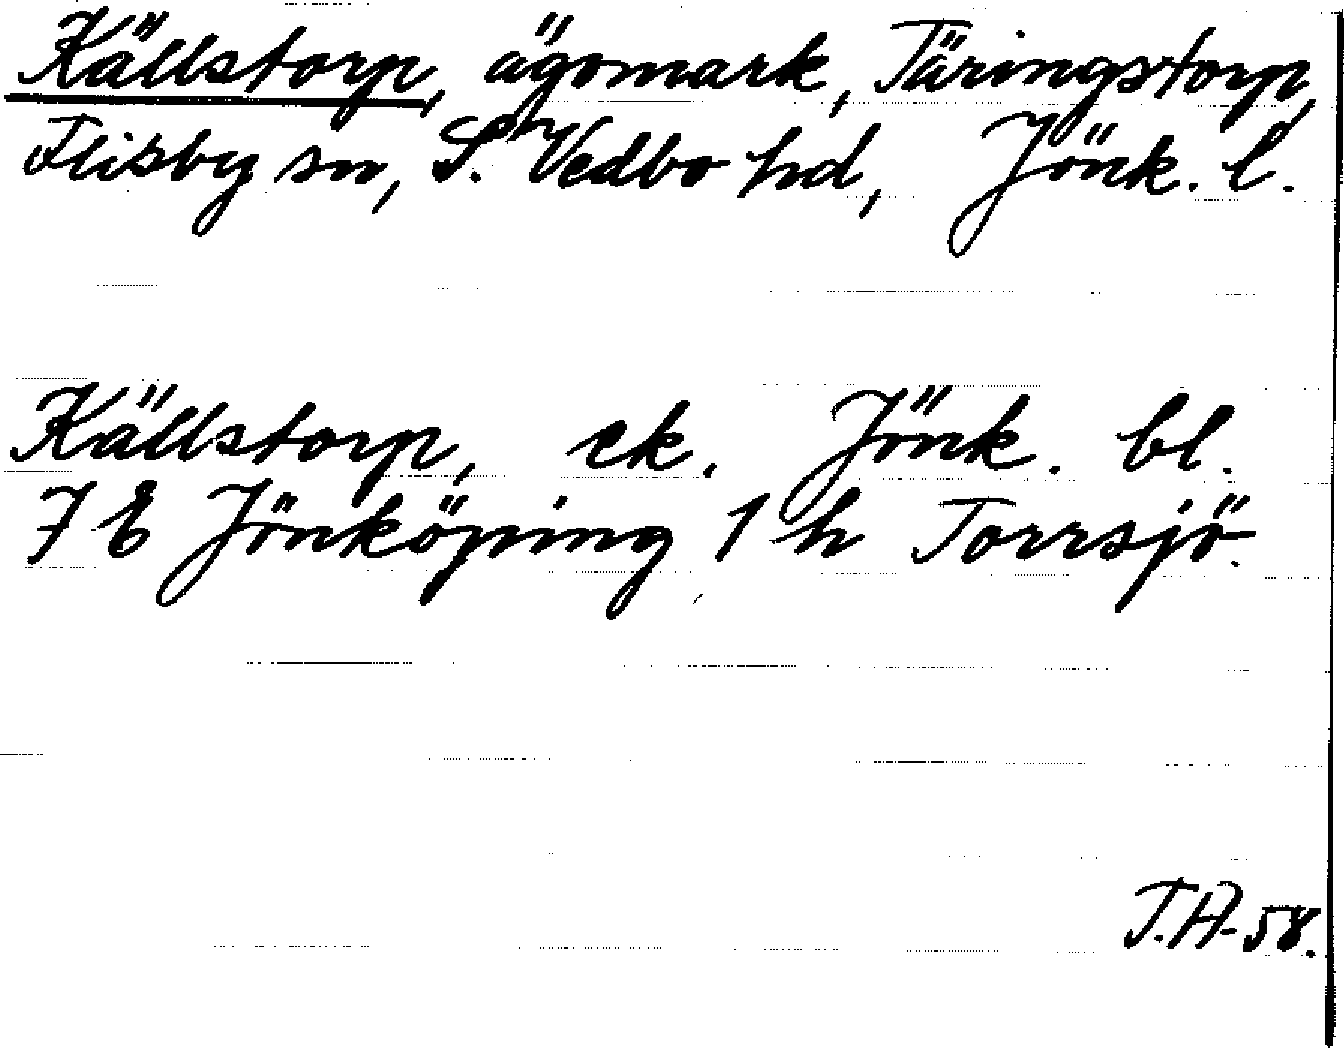 Källstorp, ägomark, Täringstorp,
Flisby sn, S. Vedbo hd, Jönk. l.
Källstorp, ek. Jönk. bl.
7 E Jönköping 1 h Torrsjö.
T.A-58.